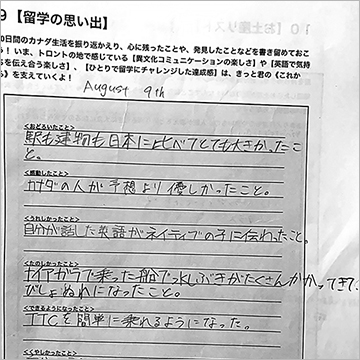 9【留学の思い出】
0日間のカナダ生活を振りかえり、心に残ったことや、発見したことなどを書き留めておこ
う！ いま、トロントの地で感じている【異文化コミュニケーションの楽しさ】や【英語で気持
ちを伝え合う楽しさ】、【ひとりで留学にチャレンジした達成感】は、きっと君の《これか
ら》を支えていくよ！
August 9th
<おどろいたこと>
駅も建物も日本に比べてとても大きかったこ
と。
<感動したこと>
カナダの人が予想より優しかったこと。
<うれしかったこと>
自分が話した英語がネイティブの子に伝わったこと。
<たのしかったこと>
ナイアガラで乗った船で水しぶきがたくさんかかってきて、
びしょぬれになったこと。
<できるようになったこと>
TTCを簡単に乗れるようになった。
<くやしかったこと>